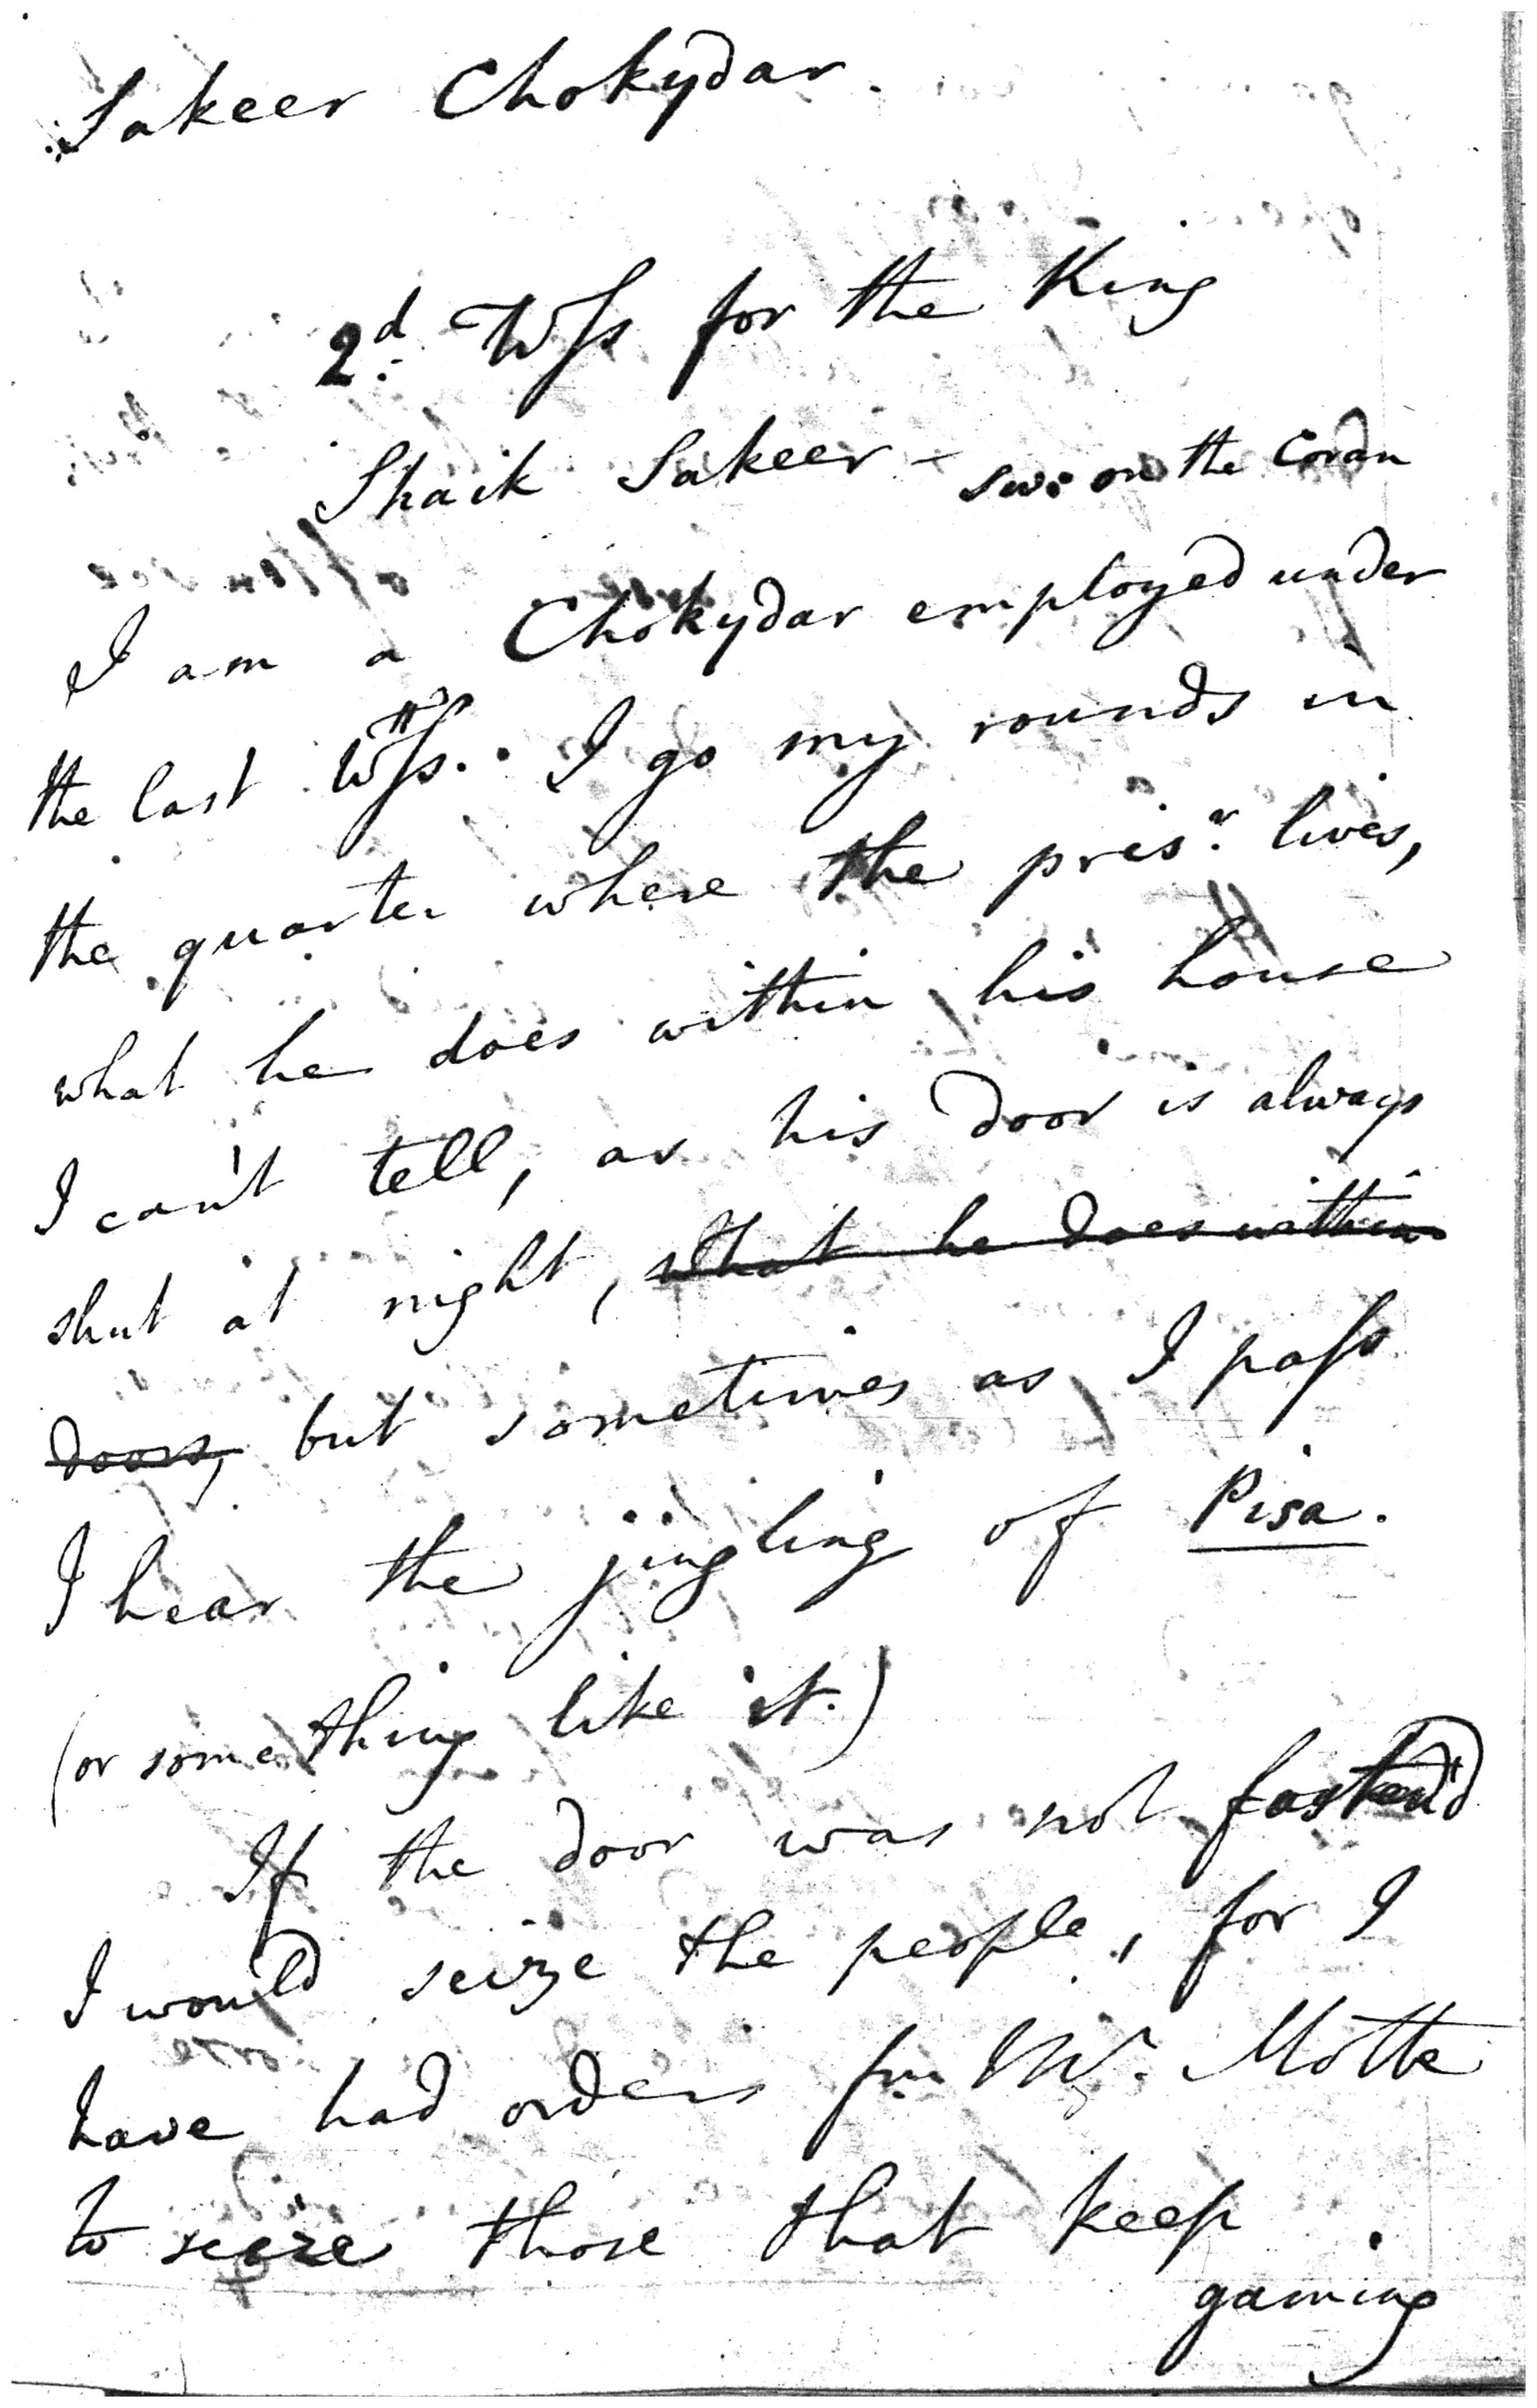 Sakeer Chokydar.
2d. Wss for the King
Shaik Sakeer – swo on the Coran
I am a Chokydar employed under
the last Wss. I go my rounds in
the quarter where the prisr. lives,
what he does within his house
I can't tell, as his door is always
shut at night, what he does within
doors, but sometimes as I pass
I hear the jingling of Pisa.
(or something like it.)
If the door was not fasten'd
I would seize the people, for I
have had orders fm Mr. Motte
to seize those that keep
gaming